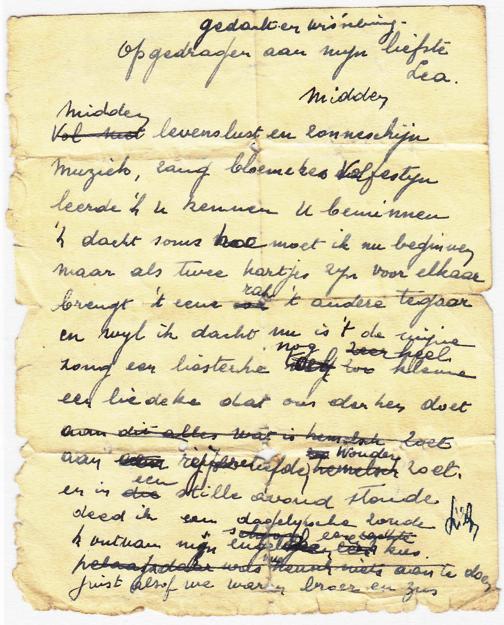 gedank en
Opgedragen aan mijn liefste
Lea.
Midden
Midden
Vol met levenslust en zonneschijn
Muziek, zang bloemekes Vol festijn
leerde 'k u kennen U beminnen
'k dacht soms hoe moet ik nu beginnen
maar als twee hartjes zijn voor elkaar
brengt 't eene 't andere tegaar
en wijl ik dacht nu is 't de mijne
nog zeer heel
zong een liesterke heel zoo kleine
een liedeke dat ons derken doet
aan dit alles wat is hemelsch zoet
wonder
aan een liefde hemelsch zoet.
een
en in die stille avond stonde
deed ik een dagelijksche zonde
'k ontvan mijn kus.
wat niets aan te doen
juist alsof we waren broer en zus